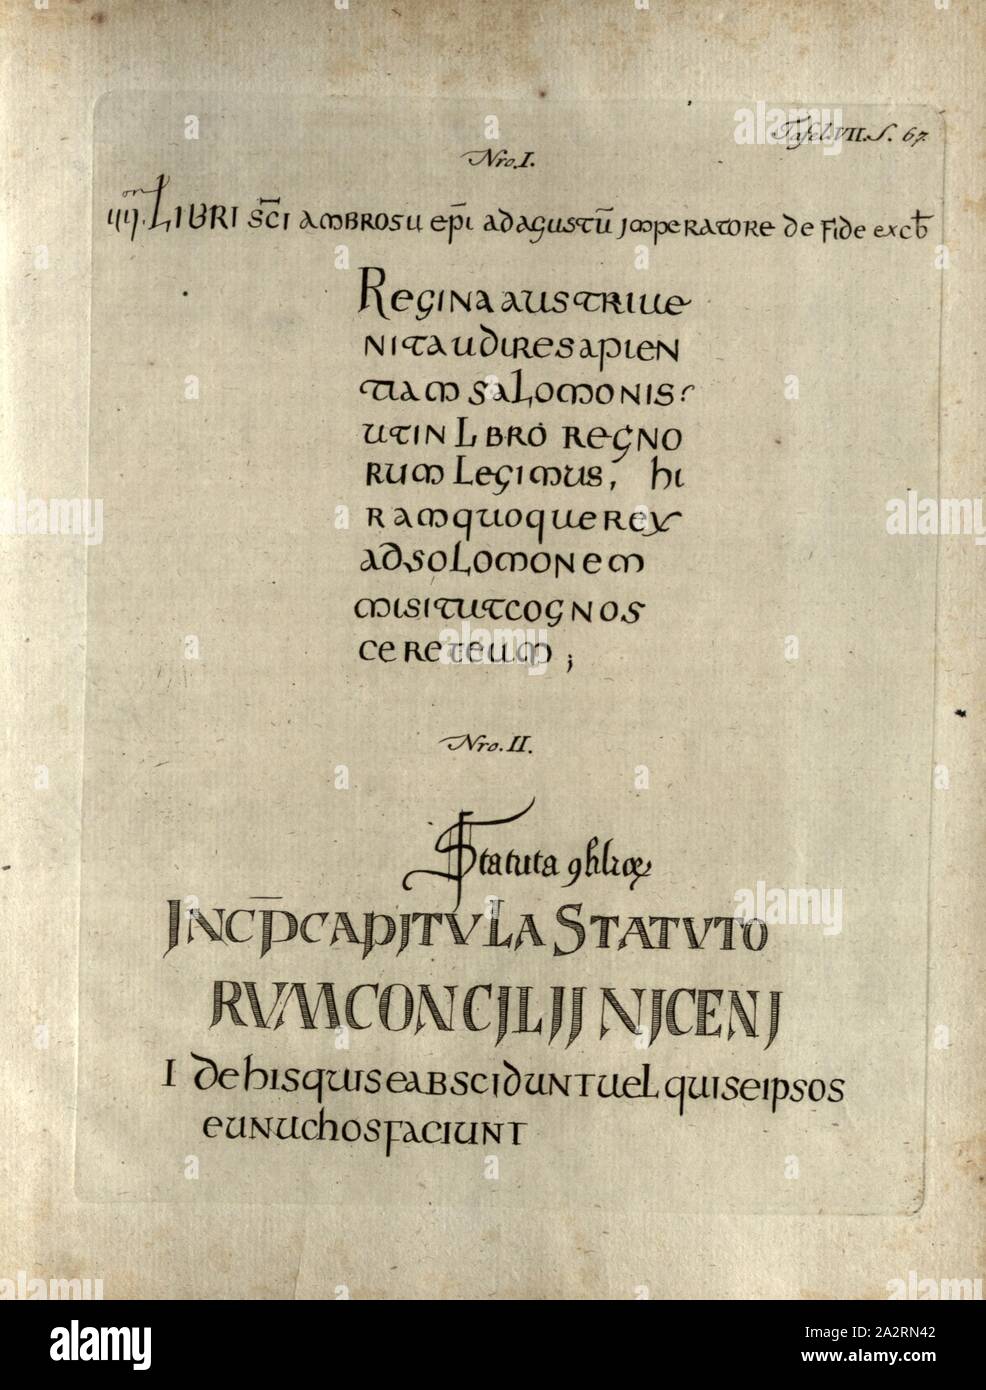 Tafel. VII. S. 67
Nro. I.
IIII. LIBRI SC̄I AMBROSII EP̄I AD AGUSTŪ IMPERATORE DE FIDE
REGINA AUSTRI UE
NIT AUDIRE SAPIEN
TIAM SALOMONIS
UT IN LIBRO REGNO
RUM LEGIMUS, HI
RAM QUOQUE REX
AD SOLOMONEM
MISIT UT COGNOS
CERET EUM ;
Nro. II.
Statuta
INCP̄ CAPITVLA STATVTO
RVM CONCILII NICENI
I DE HIS QUI SE ABSCIDUNT UEL QUI SE IPSOS
EUNUCHOS FACIUNT
alamy
Image ID: 2A2RN42
www.alamy.com